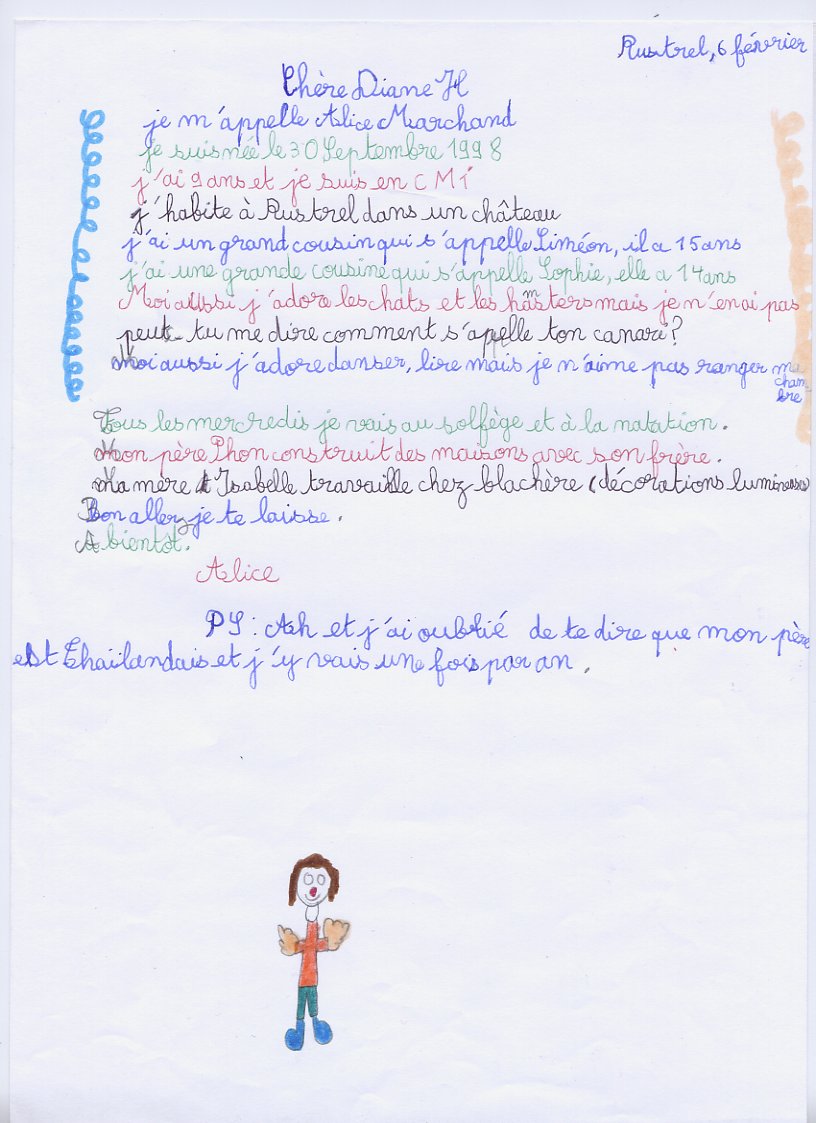 Rustrel, 6 février
Chère Diane H
je m'appelle Alice Marchand
je suis née le 30 Septembre 1998
j'ai 9 ans et je suis en CM1
j'habite à Rustrel dans un château
j'ai un grand cousin qui s'appelle Siméon, il a 15 ans
j'ai une grande cousine qui s'appelle Sophie, elle a 14 ans
Moi aussi j'adore les chats et les hamsters mais je n'en ai pas
peut-tu me dire comment s'apelle ton canari ?
Moi aussi j'adore danser, lire mais je n'aime pas ranger ma chambre
Tous les mercredis je vais au solfège et à la natation.
Mon père Phon construit des maisons avec son frère.
Ma mère Isabelle travaille chez blachère (décorations lumineuses)
Bon allez je te laisse.
A bientôt.
Alice
PS : Ah et j'ai oublié de te dire que mon père
est Thaïlandais et j'y vais une fois par an.